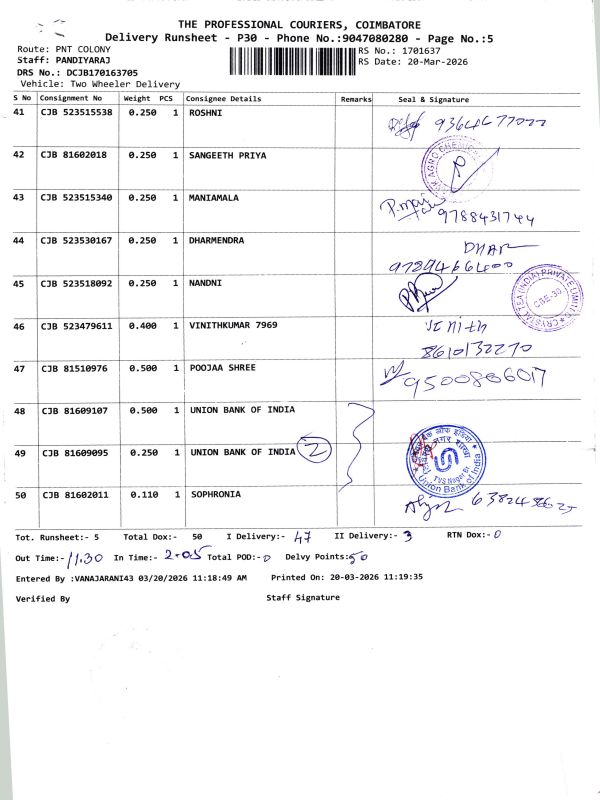 THE PROFESSIONAL COURIERS, COIMBATORE
Delivery Runsheet - P30 - Phone No.:9047080280 - Page No.:5
Route: PNT COLONY
RS No.: 1701637
Staff: PANDIYARAJ
RS Date: 20-Mar-2026
DRS No.: DCJB170163705
Vehicle: Two Wheeler Delivery
S No Consignment No Weight PCS Consignee Details Remarks Seal & Signature
41 CJB 523515538 0.250 1 ROSHNI
42 CJB 81602018 0.250 1 SANGEETH PRIYA
43 CJB 523515340 0.250 1 MANIAMALA
9788431744
44 CJB 523530167 0.250 1 DHARMENDRA
DHAR
45 CJB 523518092 0.250 1 NANDNI
CRYSTAL TEA (INDIA) PRIVATE LIMITED
46 CJB 523479611 0.400 1 VINITHKUMAR 7969
8610132270
47 CJB 81510976 0.500 1 POOJAA SHREE
9500806017
48 CJB 81609107 0.500 1 UNION BANK OF INDIA
49 CJB 81609095 0.250 1 UNION BANK OF INDIA 2
Union Bank of India
50 CJB 81602011 0.110 1 SOPHRONIA
Tot. Runsheet:- 5 Total Dox:- 50 I Delivery:- 47 II Delivery:- 3 RTN Dox:- 0
Out Time:- 11.30 In Time:- 2.05 Total POD:- 0 Delvy Points: 50
Entered By :VANAJARANI43 03/20/2026 11:18:49 AM Printed On: 20-03-2026 11:19:35
Verified By Staff Signature